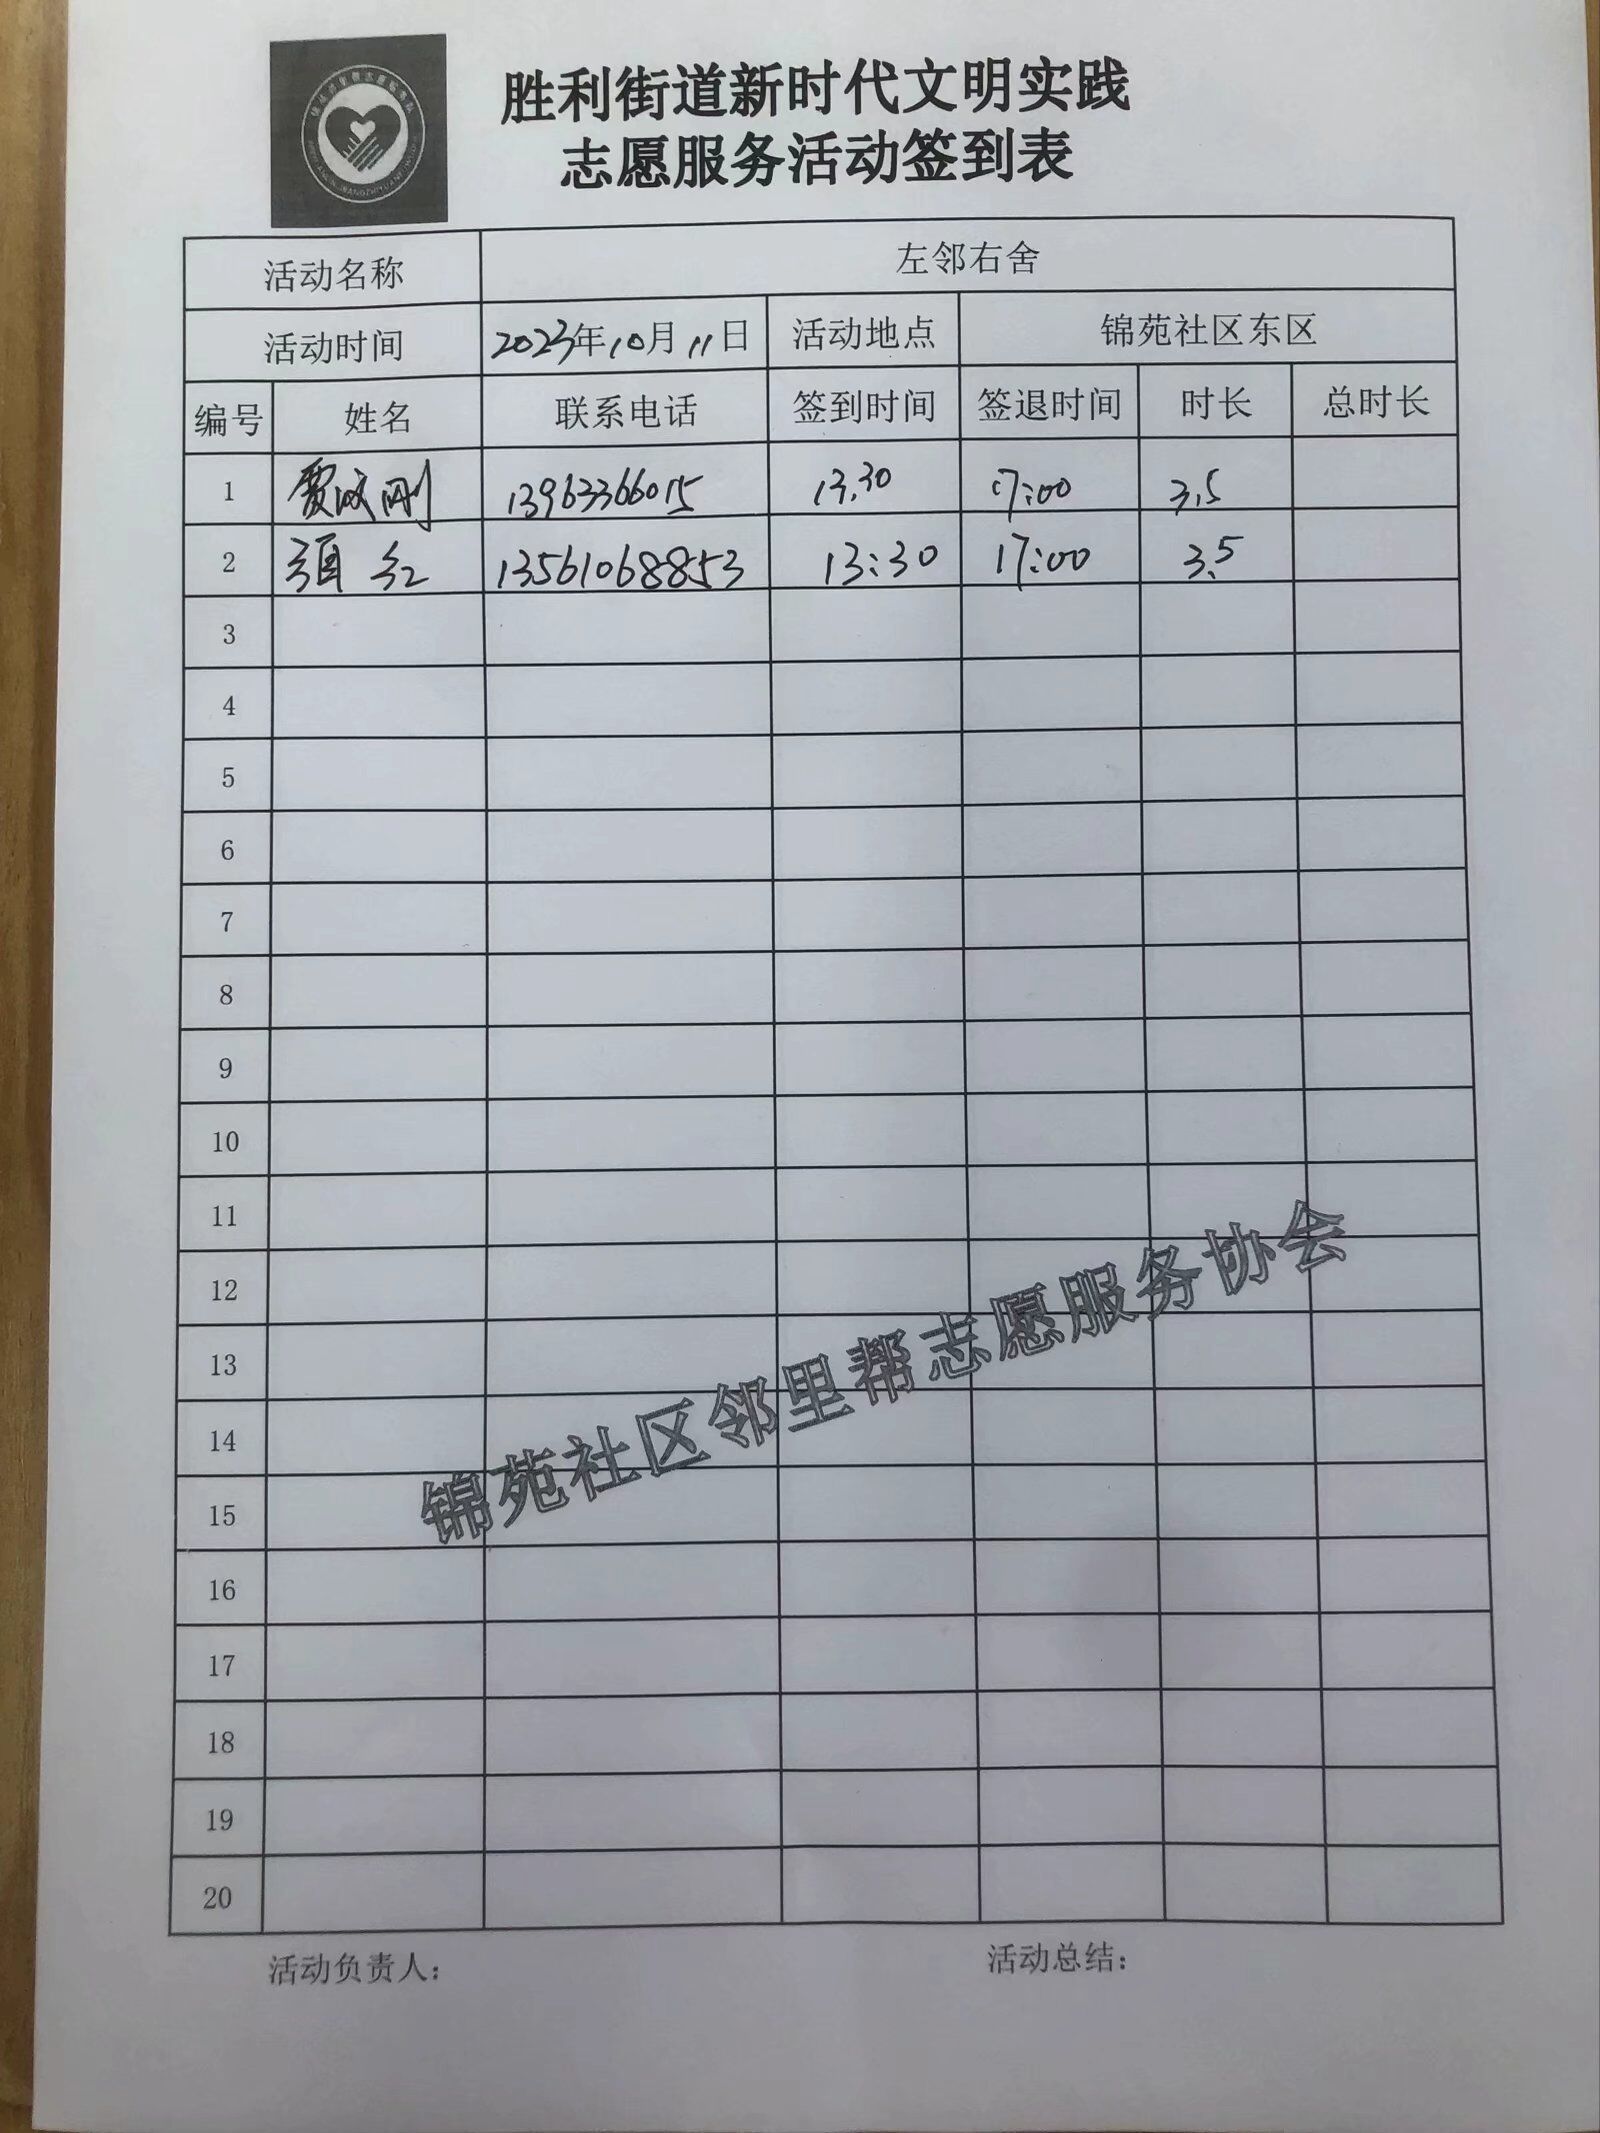 胜利街道新时代文明实践
志愿服务活动签到表
活动名称 左邻右舍
活动时间 2023年10月11日 活动地点 锦苑社区东区
编号 姓名 联系电话 签到时间 签退时间 时长 总时长
1 贾成刚 13963366015 13.30 17:00 3.5
2 项红 13561068853 13:30 17:00 3.5
3
4
5
6
7
8
9
10
11
12
13
14
15
16
17
18
19
20
锦苑社区邻里帮志愿服务协会
活动负责人： 活动总结：